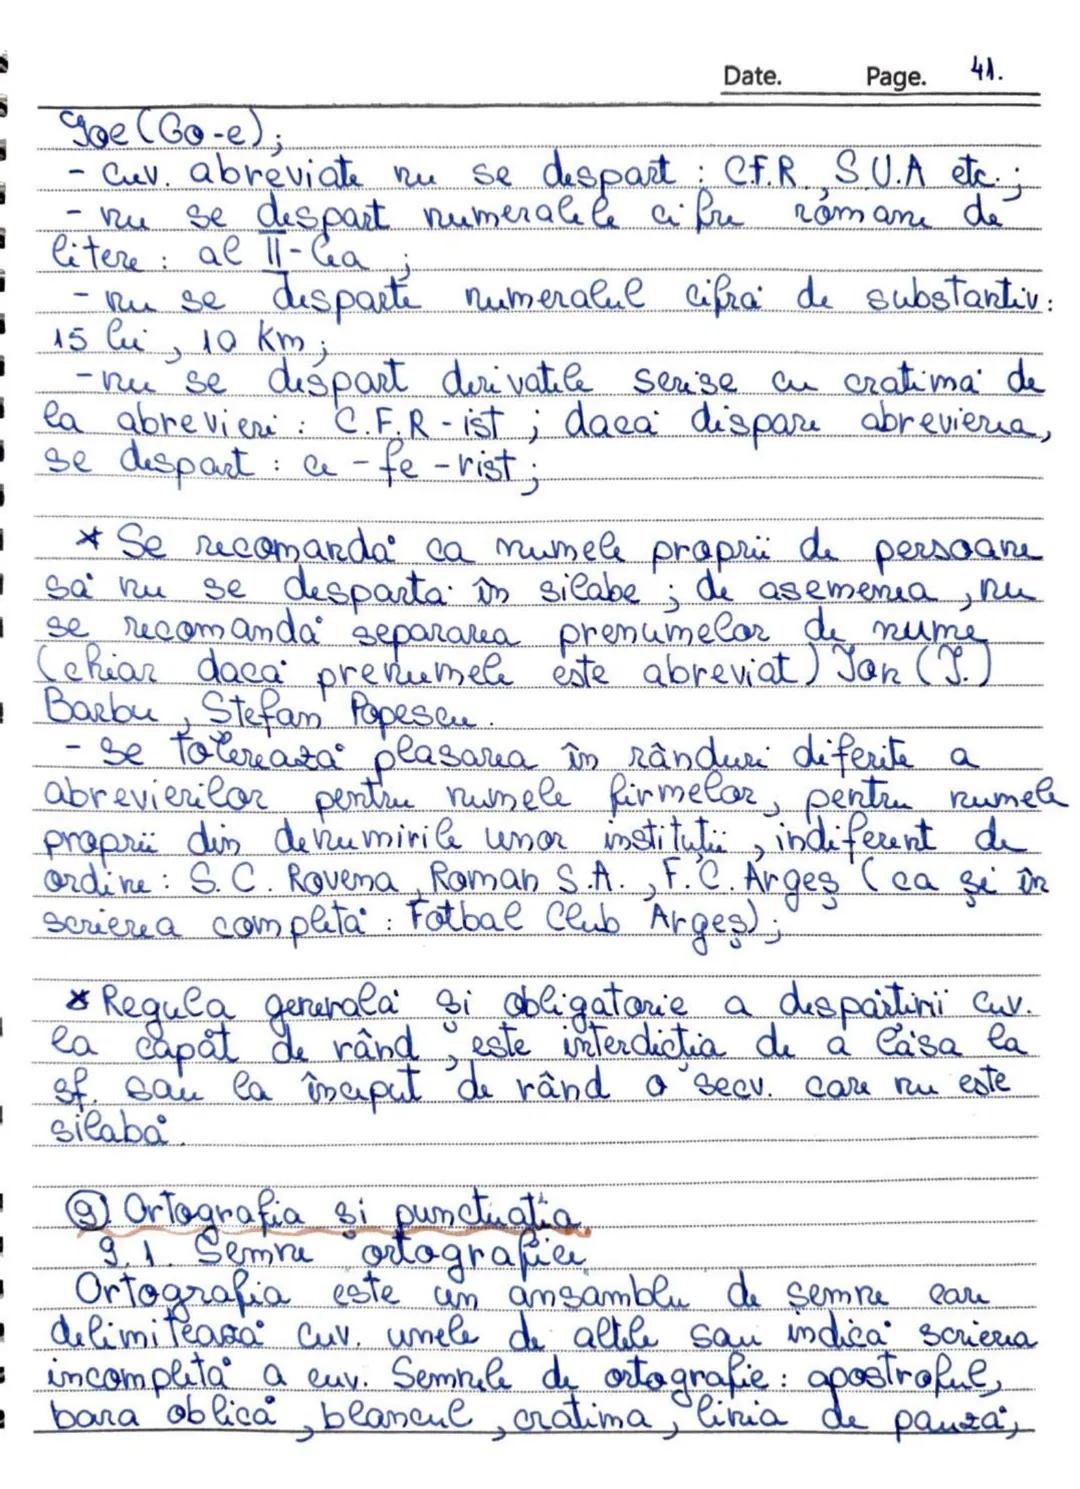 Date. Page. 41.
Goe (Go-e);
- cuv. abreviate nu se despart : C.F.R., S.U.A etc. ;
- nu se despart numeralele cifre romane de
litere : al II-lea ;
- nu se desparte numeralul cifră de substantiv:
15 lei, 10 km ;
- nu se despart derivatele scrise cu cratimă de
la abrevieri : C.F.R - ist ; dacă dispare abrevierea,
se despart : ce - fe - rist ;
* Se recomandă ca numele proprii de persoane
să nu se despartă în silabe ; de asemenea, nu
se recomandă separarea prenumelor de nume
(chiar dacă prenumele este abreviat) Ion (I.)
Barbu, Stefan Popescu.
- se tolerează plasarea în rânduri diferite a
abrevierilor pentru numele firmelor, pentru numele
proprii din denumirile unor instituții, indiferent de
ordine : S.C. Rovena, Roman S.A., F.C. Argeș (ca și în
scrierea completă : Fotbal Club Argeș) ;
* Regula generală și obligatorie a despărțirii cuv.
la capăt de rând, este interdicția de a lăsa la
sf. sau la început de rând o secv. care nu este
silabă.
9) Ortografia și punctuația
9.1. Semne ortografice
Ortografia este un ansamblu de semne care
delimitează cuv. unele de altele sau indică scrierea
incompletă a cuv. Semnele de ortografie : apostroful,
bara oblică, blancul, cratima, linia de pauză,